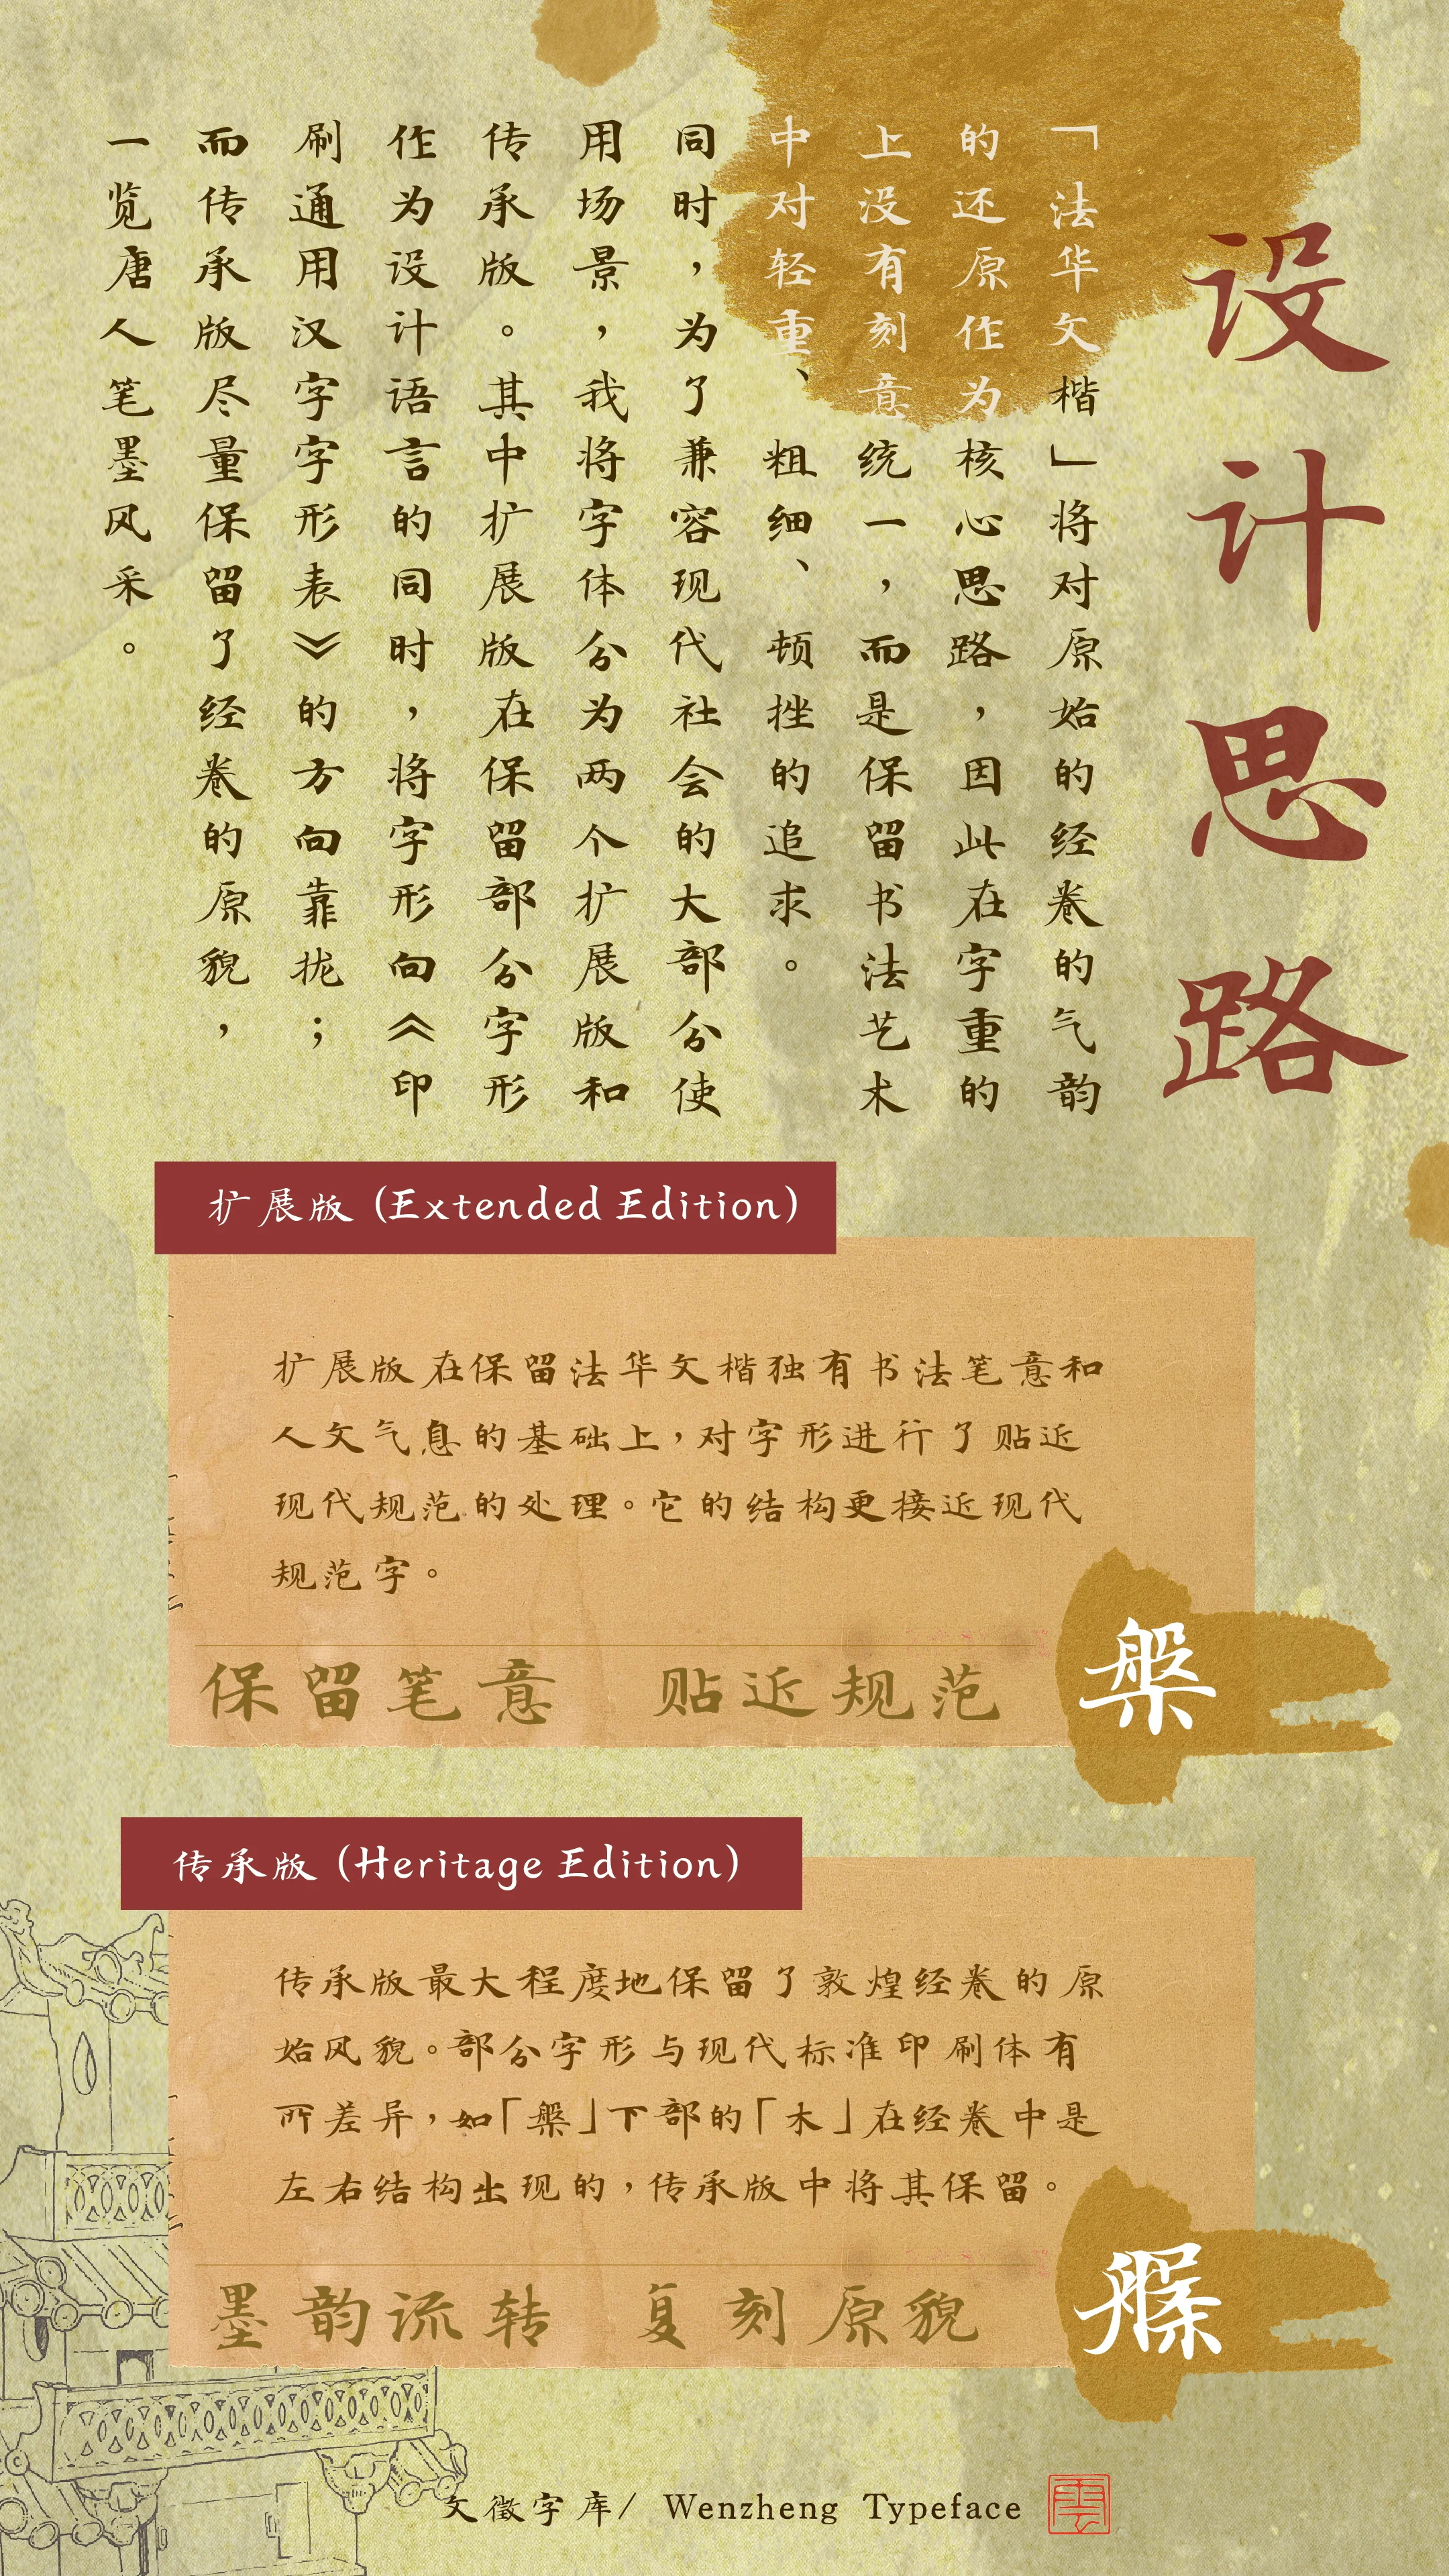 设计思路
「法华文楷」将对原始的经卷的气韵
的还原作为核心思路，因此在字重的
上没有刻意统一，而是保留书法艺术
中对轻重、粗细、顿挫的追求。
同时，为了兼容现代社会的大部分使
用场景，我将字体分为两个扩展版和
传承版。其中扩展版在保留部分字形
作为设计语言的同时，将字形向《印
刷通用汉字字形表》的方向靠拢；
而传承版尽量保留了经卷的原貌，
一览唐人笔墨风采。
扩展版 (Extended Edition)
扩展版在保留法华文楷独有书法笔意和
人文气息的基础上，对字形进行了贴近
现代规范的处理。它的结构更接近现代
规范字。
保留笔意 贴近规范
槃
传承版 (Heritage Edition)
传承版最大程度地保留了敦煌经卷的原
始风貌。部分字形与现代标准印刷体有
所差异，如「槃」下部的「木」在经卷中是
左右结构出现的，传承版中将其保留。
墨韵流转 复刻原貌
槃
文徵字库/ Wenzheng Typeface